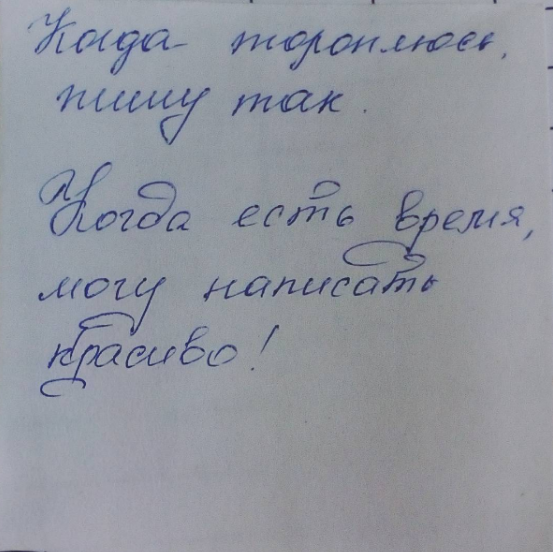 Когда тороплюсь,
пишу так.
Когда есть время,
могу написать
красиво!